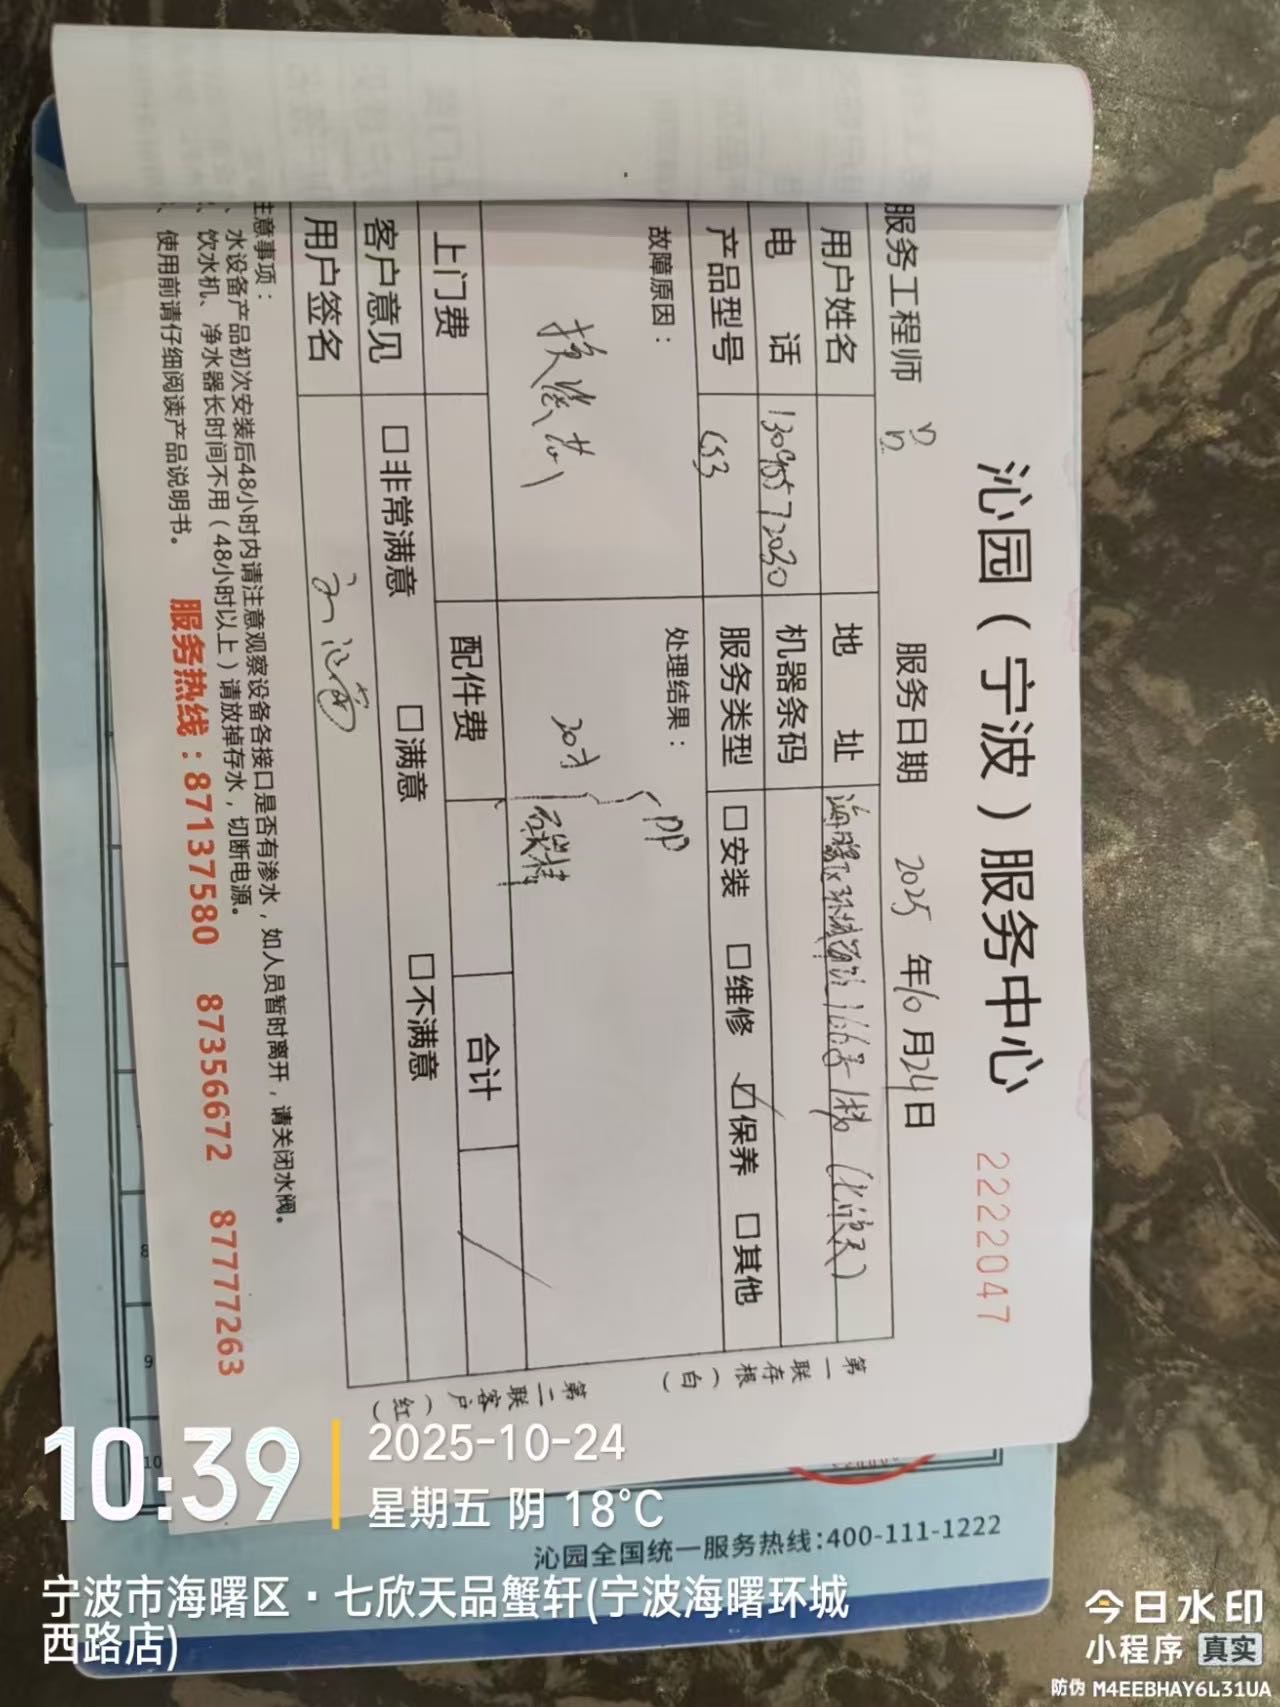 沁园（宁波）服务中心
2222047
服务工程师
服务日期 2025年10月24日
用户姓名
地 址 海曙区环城西路166号1楼（七欣天）
电 话
机器条码
产品型号
服务类型 □安装 □维修 ☑保养 □其他
故障原因：
换滤芯
处理结果：
20寸
PP
上门费
配件费
合计
客户意见 □非常满意 □满意 □不满意
用户签名
注意事项：
、水设备产品初次安装后48小时内请注意观察设备各接口是否有渗水，如人员暂时离开，请关闭水阀。
、饮水机、净水器长时间不用（48小时以上）请放掉存水，切断电源。
、使用前请仔细阅读产品说明书。
服务热线：87137580 87356672 87777263
第一联存根（白）
第二联客户（红）
8
9
10
沁园全国统一服务热线:400-111-1222
10:39
2025-10-24
星期五 阴 18℃
宁波市海曙区·七欣天品蟹轩(宁波海曙环城
西路店)
今日水印
小程序 真实
防伪 M4EEBHAY6L31UA